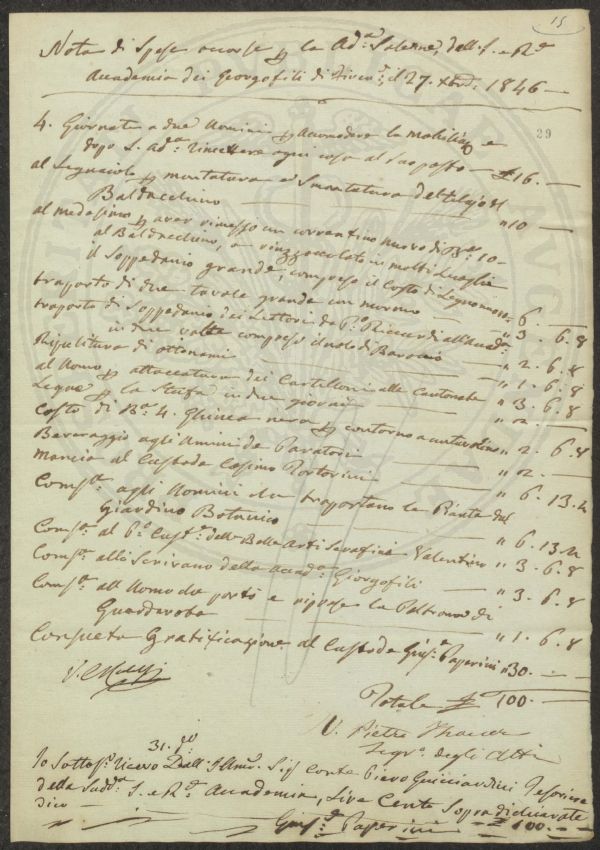 15
Nota di Spese occorse p la Ad.a Solenne, dell'I. e R.e
Accademia dei Georgofili di Firen.e, il 27. Xbre 1846 —
29
4. Giornate a due Uomini p accomodare la mobilia, e
dopo l'Ad.a rimettere ogni cosa al Suo posto — £ 16. —
al Legnaiolo p montatura e Smontatura del telajo
Baldacchino — " 10 —
al medesimo p aver rimesso un correntino nuovo di B.a 10 —
al Baldacchino, e rinzoccolato in molti luoghi
il Soppedanio grande, compreso il Costo di Legname " 6. —
trasporto di due tavole grande un marmo — " 3. 6. 8
trasporto di Soppedanio dei Lettori da P.o Riccardi all'Accad.a
in due volte compreso il nolo di Baroccio " 2. 6. 8
Ripulitura di ottonami — " 1. 6. 8
al Uomo p attaccatura dei Cartelloni alle Cantonate " 3. 6. 8
Legne p la Stufa in due giorni — " 2. —
Costo di B.a 4. Ghinea nera p contorno a " 2. 6. 8
Beveraggio agli Uomini de Paratori — " 2. —
Mancia al Custode Cosimo Tortorini — " 6. 13. 4
Comp.a agli Uomini che trasportano le Piante dal
Giardino Botanico — " 6. 13. 4
Comp.a al P.o Cust.e delle Belle Arti Serafino Valentino " 3. 6. 8
Comp.a allo Scrivano della Accad.a Georgofili — " 3. 6. 8
Comp.a all'Uomo che portò e riprese le Poltrone di
Guardaroba — " 1. 6. 8
Consueta Gratificazione al Custode Gius.e Paperini " 30. —
Totale £ 100. —
V. Pietro Thouar
Segr.o degli Atti
31. d.o
Io Sottos.o ricevo Dall'Illmo. Sig Conte Piero Guicciardini Tesoriere
della Sudd.a I. e R.e Accademia, Lire Cento Sopradichiarate
dico — £ 100. —
Gius.e Paperini